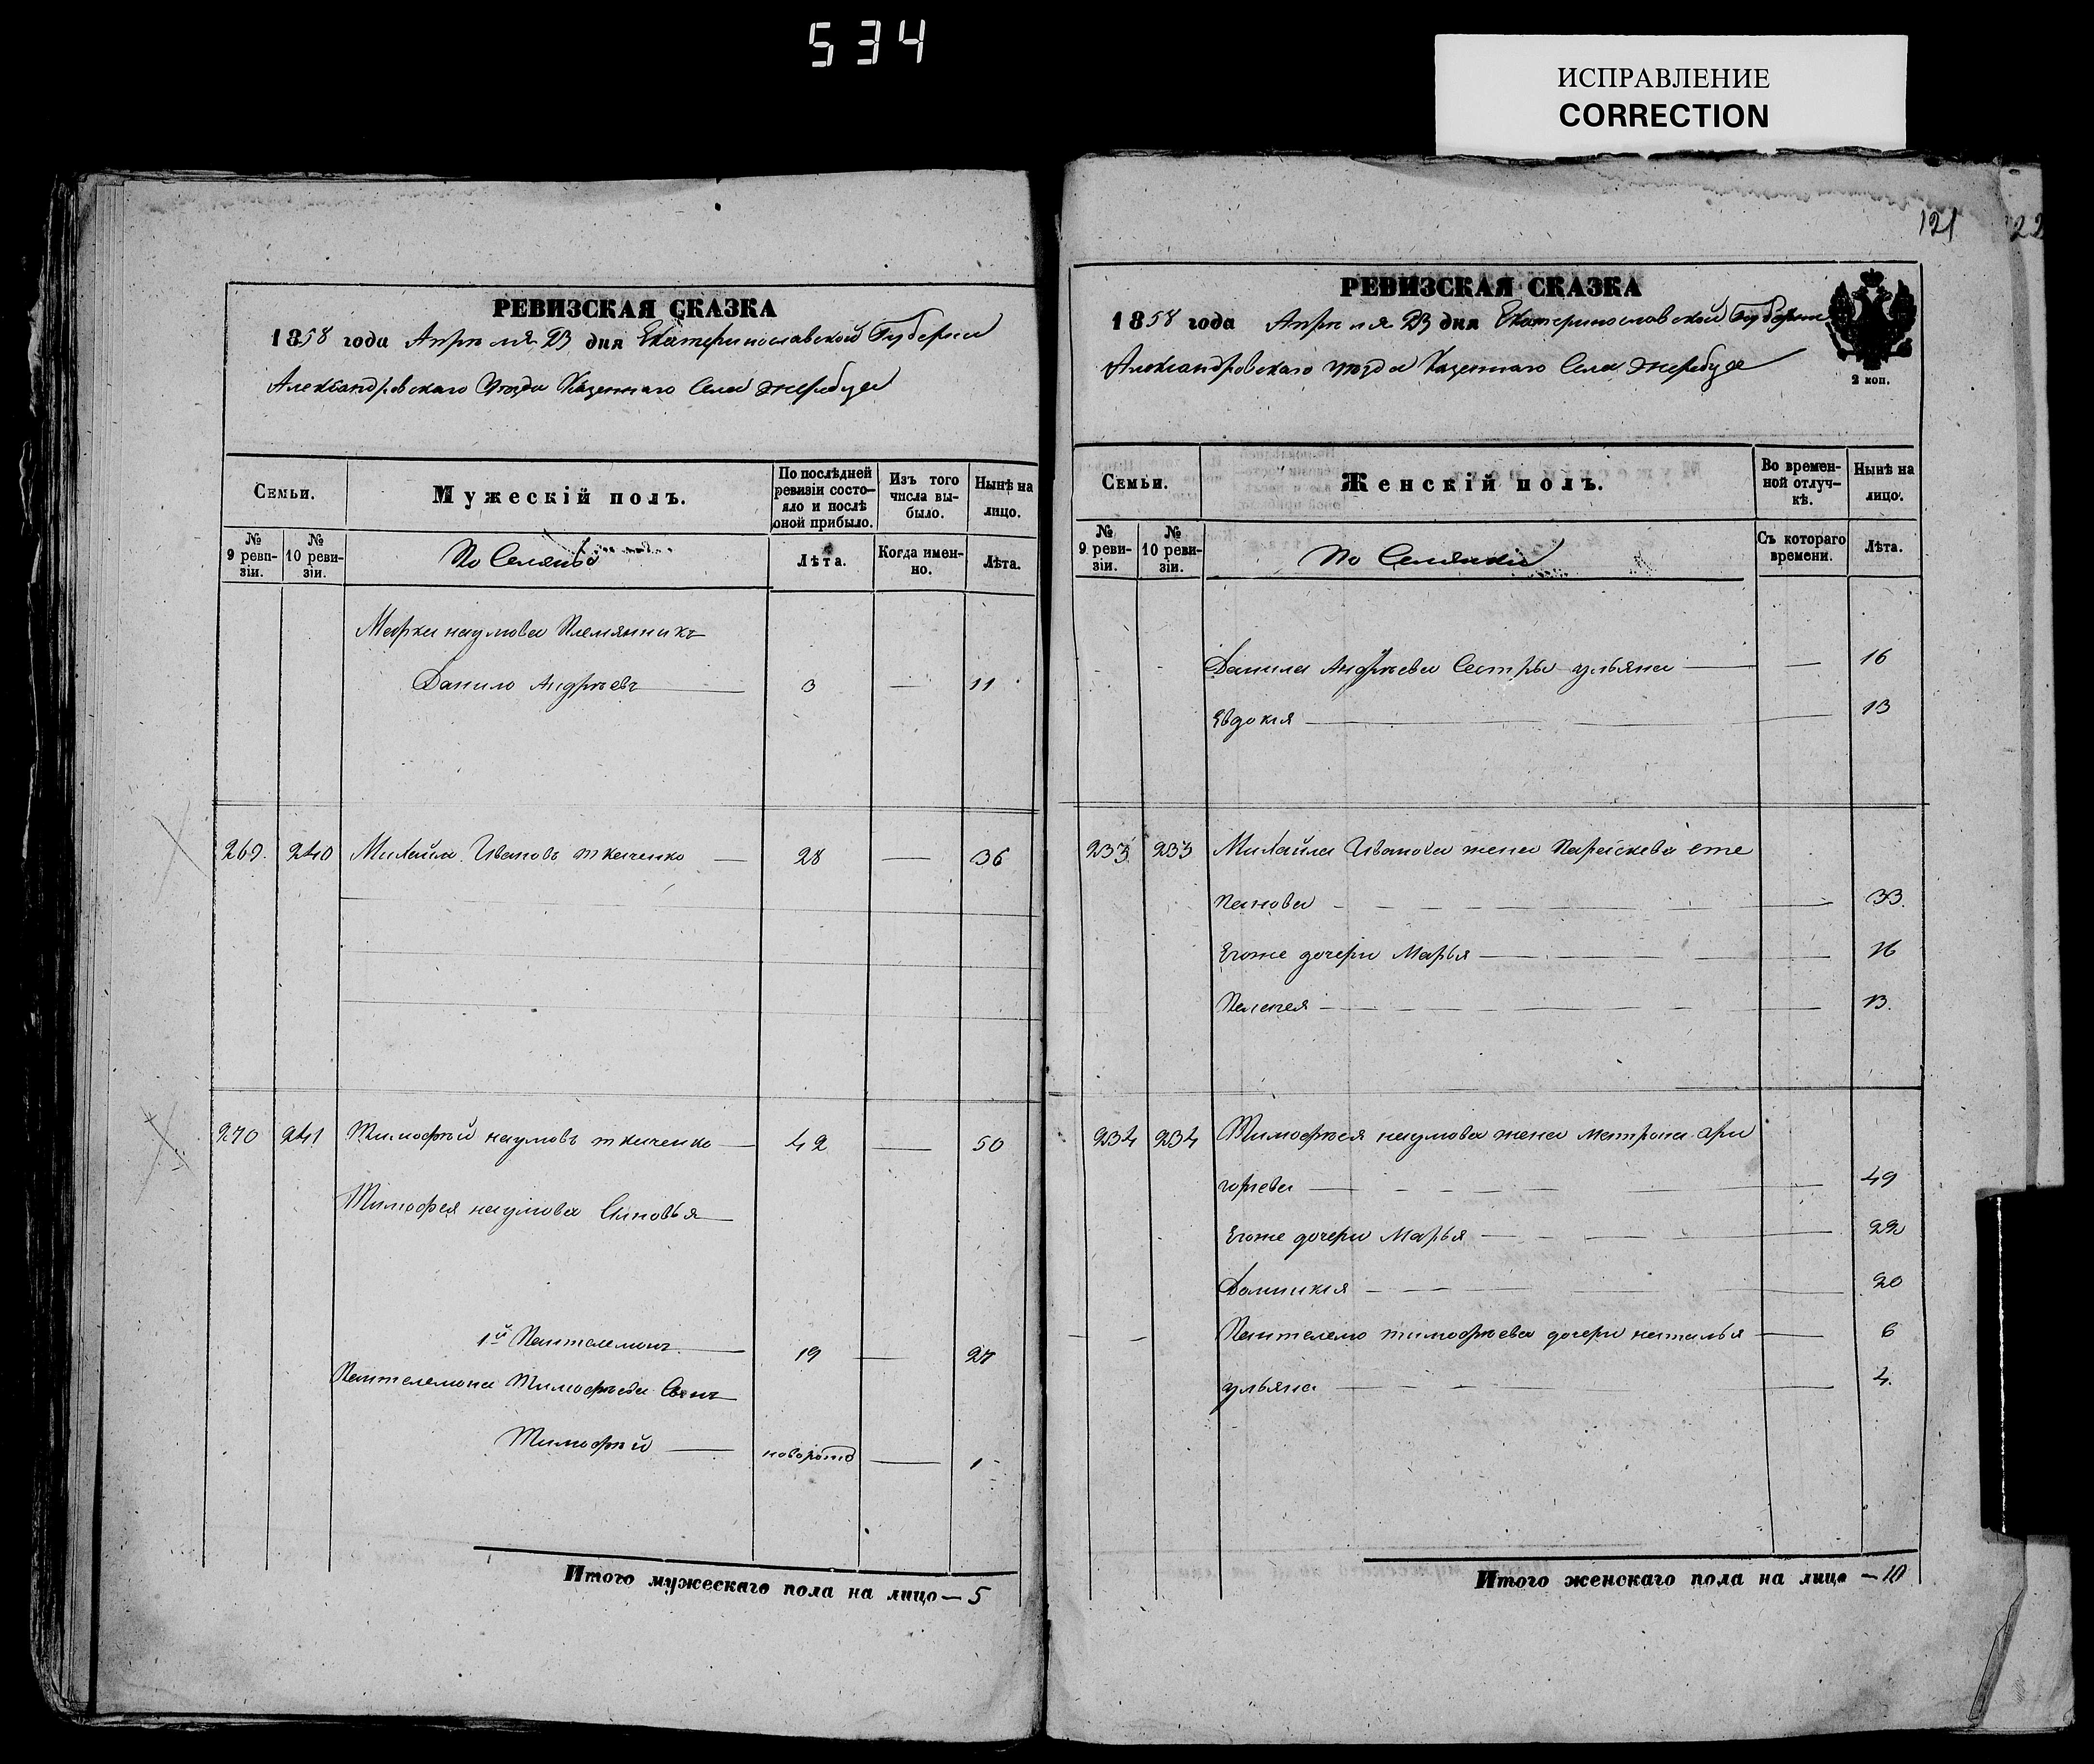 534
ИСПРАВЛЕНИЕ
CORRECTION
РЕВИЗСКАЯ СКАЗКА
1858 года Апрѣля 23 дня Екатеринославской Губерніи
Александровскаго Уѣзда Казеннаго Села Жеребца
Семьи.
Мужескій полъ.
По послѣдней ревизіи состояло и послѣ оной прибыло.
Изъ того числа выбыло.
Нынѣ на лицо.
№ 9 ревизіи.
№ 10 ревизіи.
Лѣта.
Когда именно.
Лѣта.
Марка наумова Племянникъ
Данило Андреевъ — 3 — 11
269. 240 Михайло Ивановъ ткаченко — 28 — 36
270 241 Тимофѣй наумовъ ткаченко — 42 — 50
Тимофея наумова Сыновья
1й Пантелемонъ — 19 — 27
Пантелемона Тимофѣева Сынъ
Тимофѣй — новорожд — 1
Итого мужескаго пола на лицо — 5
121
22
РЕВИЗСКАЯ СКАЗКА
1858 года Апрѣля 23 дня Екатеринославской Губерніи
Александровскаго уѣзда Казеннаго Села Жеребца
2 коп.
Семьи.
Женскій полъ.
Во временной отлучкѣ.
Нынѣ на лицо.
№ 9 ревизіи.
№ 10 ревизіи.
Съ котораго времени.
Лѣта.
Данила Андрѣева Сестры ульяна — 16
Евдокія — 13
233 233 Михайла Иванова жена Параскева сте
панова — 33.
Егоже дочери Марья — 16
Пелагея — 13.
234 234 Тимофѣя наумова жена матрона гри
горьева — 49
Егоже дочери Марья — 22
Домникія — 20
Пантелемо тимофѣева дочери наталья — 6
ульяна — 4.
Итого женскаго пола на лицо — 10